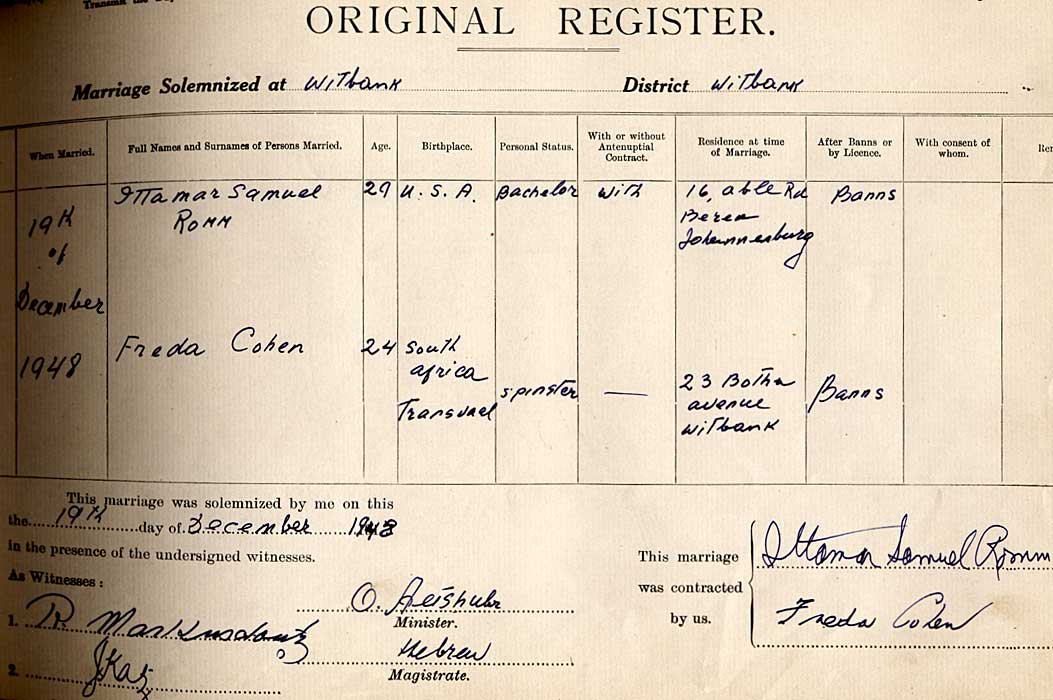 Transmit the
ORIGINAL REGISTER.
Marriage Solemnized at Witbank District Witbank
When Married. Full Names and Surnames of Persons Married. Age. Birthplace. Personal Status. With or without Antenuptial Contract. Residence at time of Marriage. After Banns or by Licence. With consent of whom.
19th of December 1948
Ittamar Samuel Romm 29 U. S. A. Bachelor With 16, able Rd Berea Johannesburg Banns
Freda Cohen 24 South Africa Transvaal Spinster — 23 Botha avenue Witbank Banns
This marriage was solemnized by me on this
the 19th day of December 1948
in the presence of the undersigned witnesses.
As Witnesses:
1. R
2. J Katz
O.
Minister.
Hebrew
Magistrate.
This marriage
was contracted
by us.
Ittamar Samuel Romm
Freda Cohen